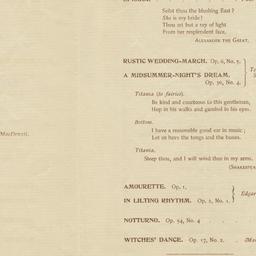 Seëst thou the blushing East?
She is my bride!
Thou art but a ray of light
From her resplendent face.
ALEXANDER THE GREAT.
RUSTIC WEDDING-MARCH. Op. 6, No. 5.
A MIDSUMMER-NIGHT'S DREAM.
Op. 36, No. 4.
Titania (to fairies).
Be kind and courteous to this gentleman,
Hop in his walks and gambol in his eyes.
MacDowell.
Bottom.
I have a reasonable good ear in music;
Let us have the tongs and the bones.
Titania.
Sleep thou, and I will wind thee in my arms.
(SHAKESPE
AMOURETTE. Op. 1,
IN LILTING RHYTHM. Op. 2, No. 1.
Edgar
NOTTURNO. Op. 54, No. 4
WITCHES' DANCE. Op. 17, No. 2.